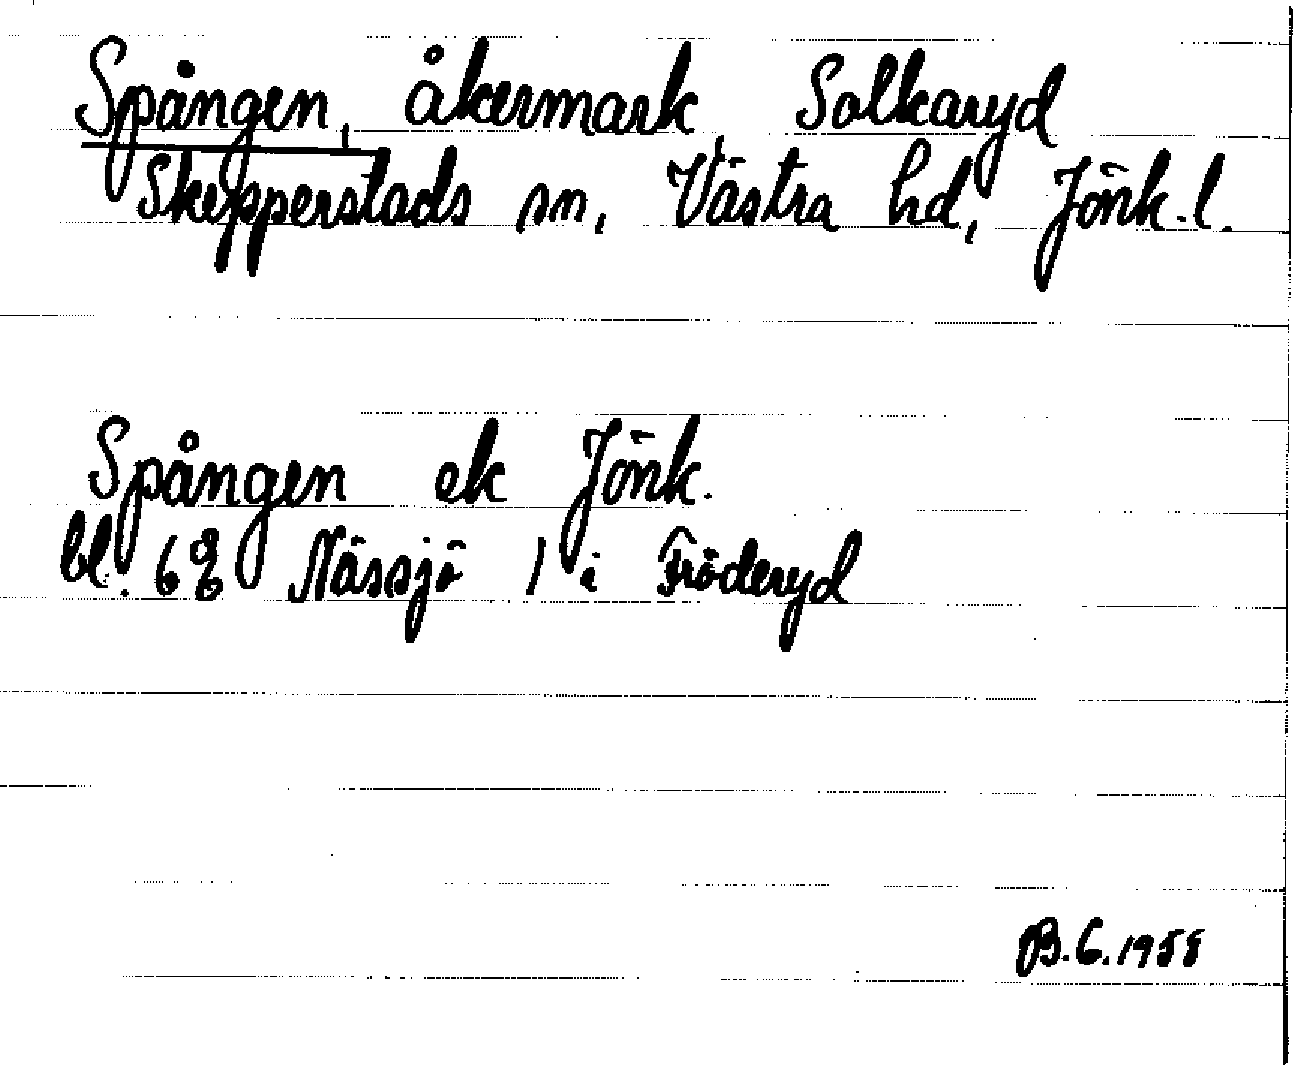 Spången, åkermark, Solkaryd
Skepperstads sn, Västra hd, Jönk.l.
Spången ek Jönk.
bl. 68 Nässjö ) i Fröderyd
B.G.1958